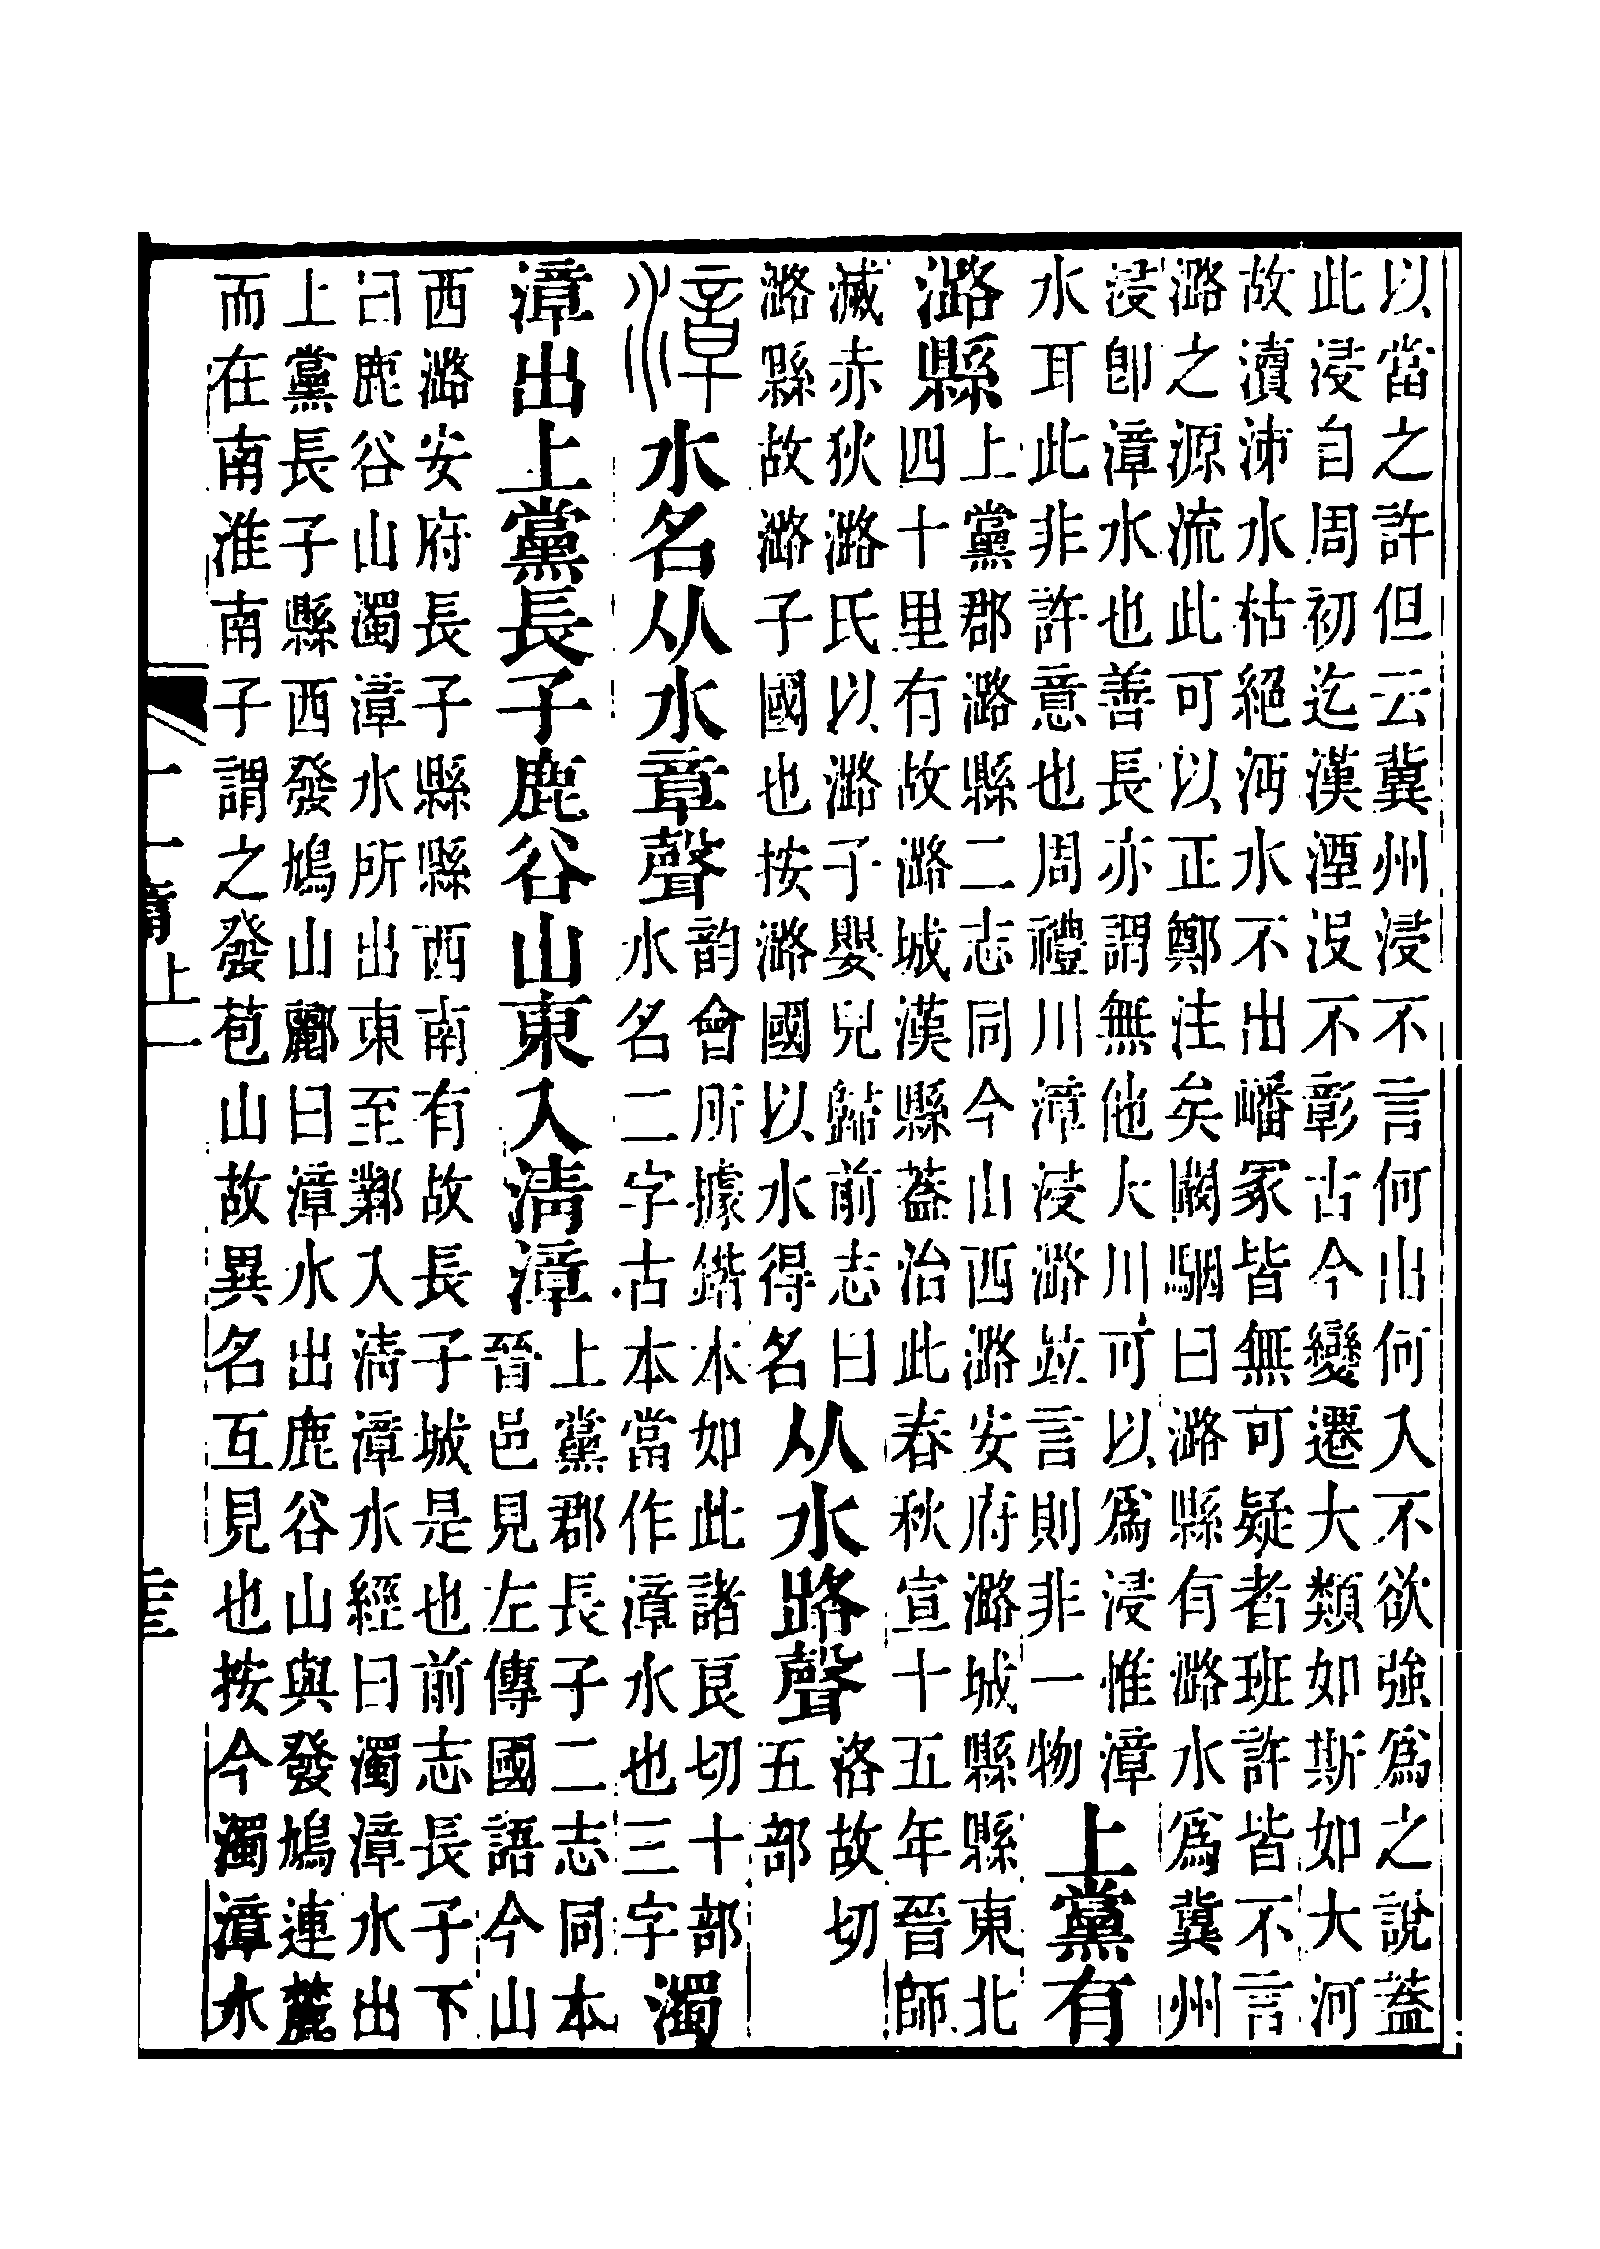 以當之許但云冀州浸不言何出何入不欲強爲之說葢
此浸自周初迄漢湮沒不彰古今變遷大類如斯如大河
故瀆泲水枯絕沔水不出嶓冢皆無可疑者班許皆不言
潞之源流此可以正鄭注矣闞駰曰潞縣有潞水爲冀州
浸卽漳水也善長亦謂無他大川可以爲浸惟漳
水耳此非許意也周禮川漳浸潞竝言則非一物
上黨有
潞縣
上黨郡潞縣二志同今山西潞安府潞城縣縣東北
四十里有故潞城漢縣葢治此春秋宣十五年晉師
滅赤狄潞氏以潞子嬰兒歸前志曰
潞縣故潞子國也按潞國以水得名
从水路聲
洛故切
五部
漳
水名从水章聲
韵會所據鍇本如此諸良切十部
水名二字古本當作漳水也三字
濁
漳出上黨長子鹿谷山東入淸漳
上黨郡長子二志同本
晉邑見左傳國語今山
西潞安府長子縣縣西南有故長子城是也前志長子下
曰鹿谷山濁漳水所出東至鄴入淸漳水經曰濁漳水出
上黨長子縣西發鳩山酈曰漳水出鹿谷山與發鳩連麓
而在南淮南子謂之發苞山故異名互見也按今濁漳水
十一篇上一